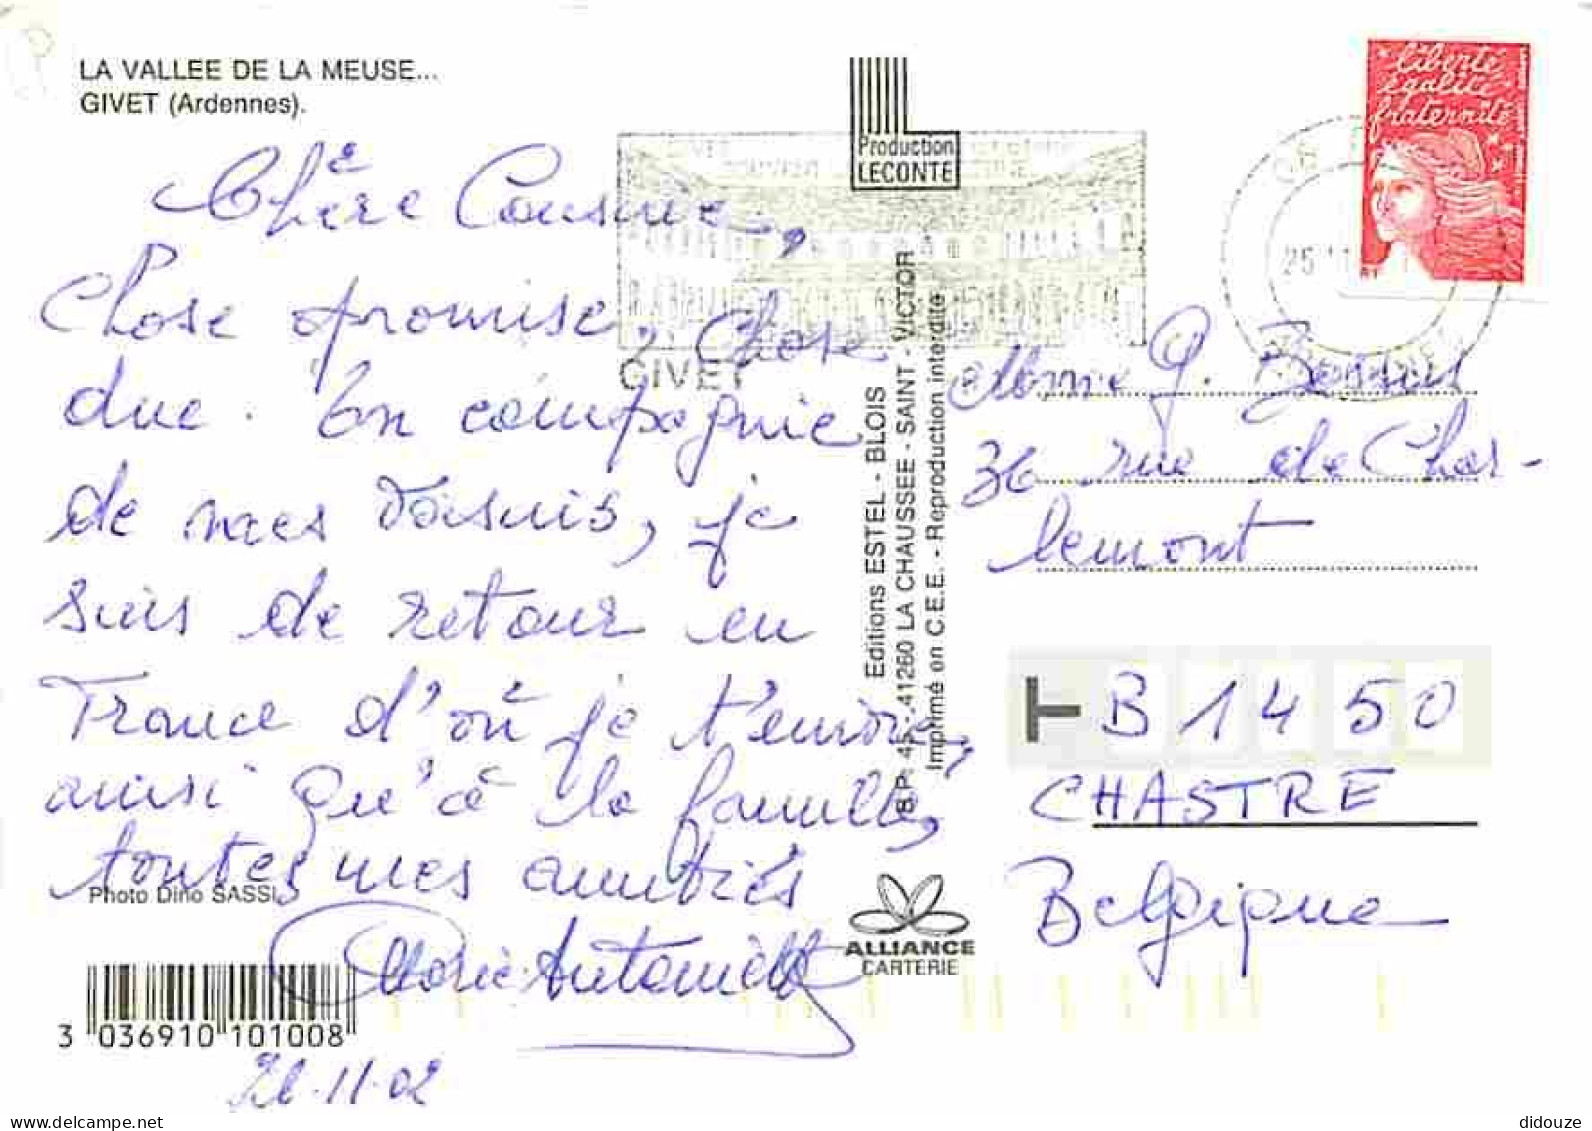 LA VALLEE DE LA MEUSE...
GIVET (Ardennes).
Chère Cousine,
Chose promise, chose
due. En compagnie
de mes voisins, je
suis de retour en
France d'où je t'envoie,
ainsi qu'à la famille,
toutes mes amitiés
Marie-Antoinette
21.11.02
Photo Dino SASSI
3 036910 101008
Production
LECONTE
GIVET
Editions ESTEL - BLOIS
B.P. 45 - 41260 LA CHAUSSEE - SAINT - VICTOR
Imprimé en C.E.E. - Reproduction interdite
ALLIANCE
CARTERIE
liberté
égalité
fraternité
25
Mme G.
36 rue de Char-
lemont
B 1450
CHASTRE
Belgique
delcampe.net
didouze